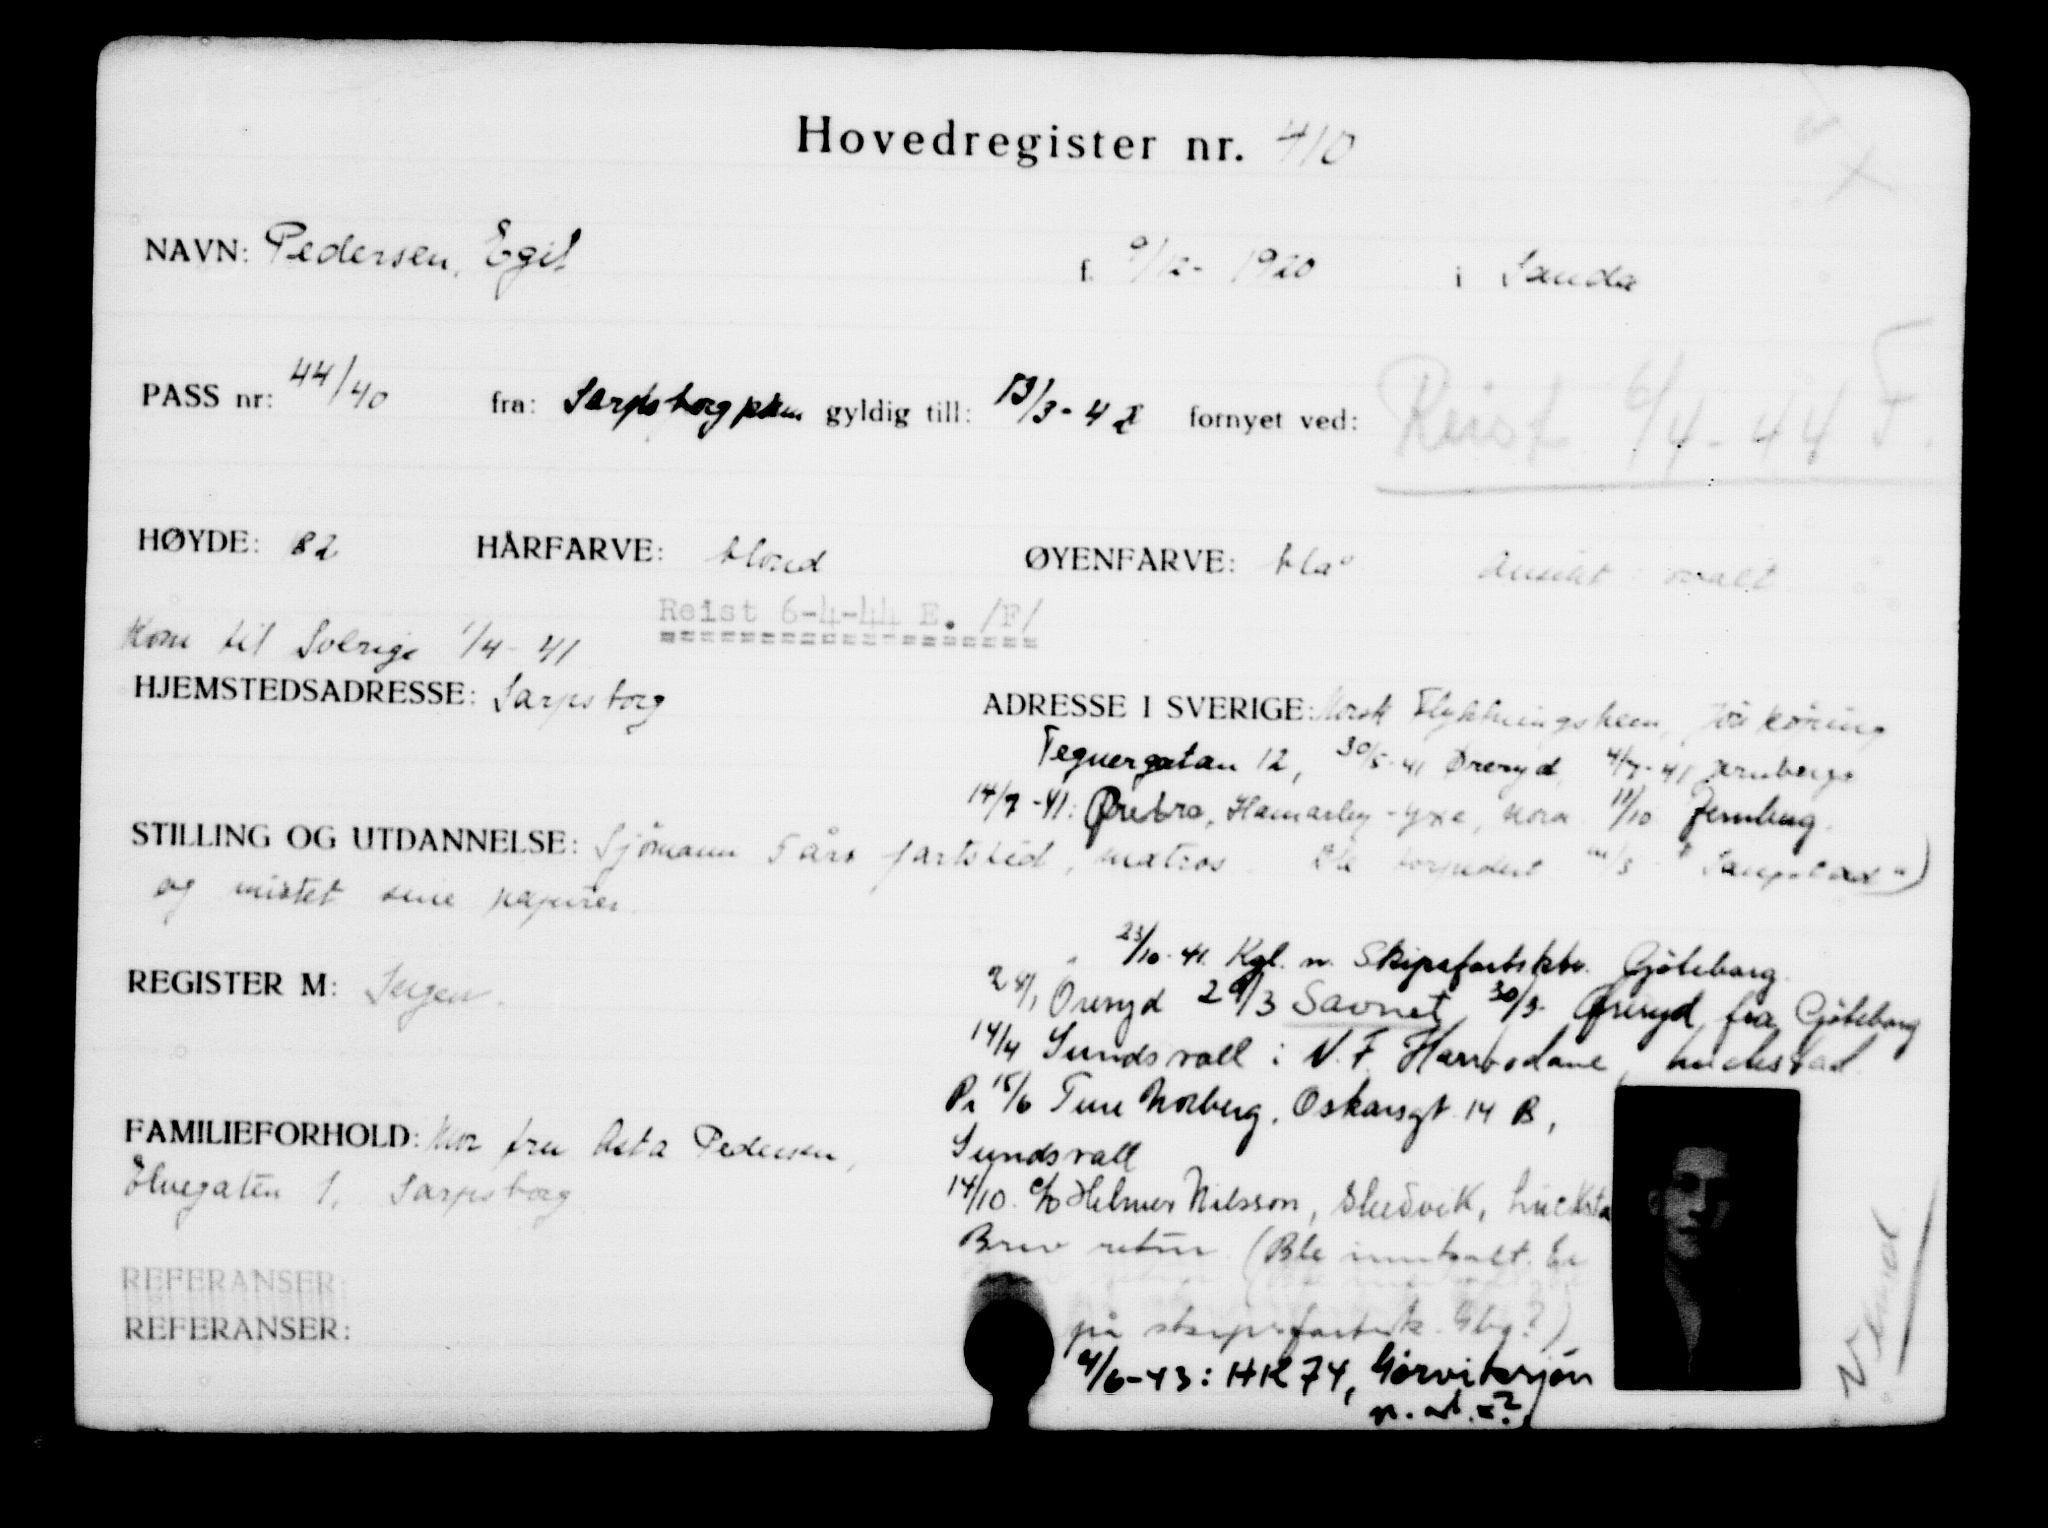 Hovedregister nr. 410
NAVN: Pedersen, Egil f. 9/12- 1920 i Sauda
PASS nr: 44/40 fra: Sarpsborg pkm gyldig till: 13/3-42 fornyet ved: Reist 6/4-44 F.
HØYDE: 82 HÅRFARVE: blond ØYENFARVE: blå ansikt: ovalt
Reist 6-4-44 E. /F/
Kom til Sverige 1/4-41
HJEMSTEDSADRESSE: Sarpsborg
ADRESSE I SVERIGE: Norsk Flyktningshem, Jönköping
Tegnergatan 12, 30/5-41 Øreryd, 4/7-41 Jernberg
14/7-41: Ørebro, Hamarby-Yxe, Nora 11/10 Jernberg.
STILLING OG UTDANNELSE: Sjömann 5 års fartstid, matros. Ble torpedert
og mistet sine papirer.
23/10-41. Kgl. n. Skipsfartsktr. Gjøteborg.
REGISTER M: Ingen.
28/1 Öreryd 29/3 Savnet 30/3- Øreryd, fra Gjøteborg
14/4 Sundsvall: N.F.
Pr 15/6 Ture Norberg, Oskarsgt. 14 B,
Sundsvall
FAMILIEFORHOLD: Mor fru Asta Pedersen,
Elvegaten 1, Sarpsborg
14/10. c/o Helmer Nilsson, Skedvik, Lucksta
Brev retur (Ble innkalt. Er
på skipsfartsk. Gbg.?)
REFERANSER:
REFERANSER:
4/6-43: HK 74, Görviksjön
n. ad. =?